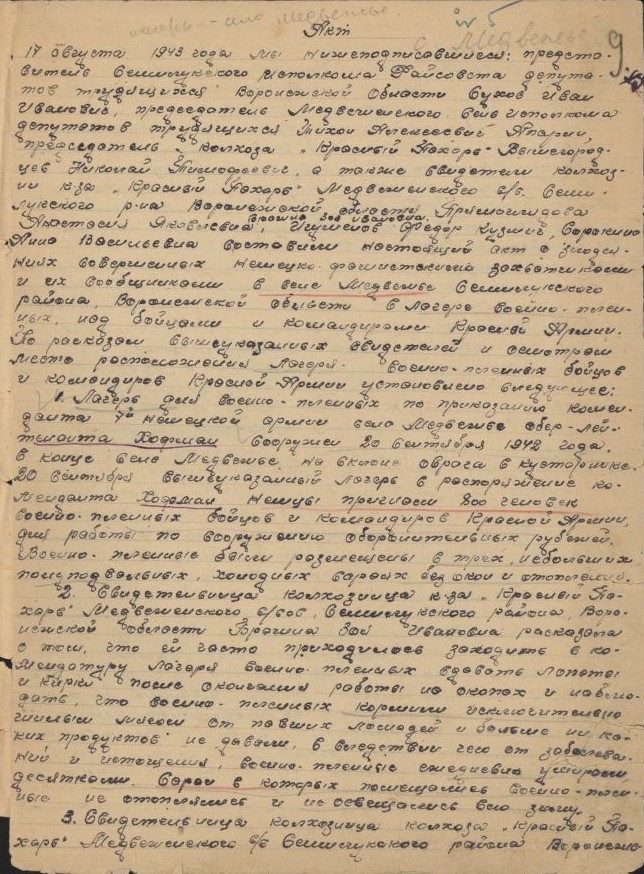 лагерь - село Медвежье
№ 5
с. Медвежье
9
Акт
17 августа 1943 года мы нижеподписавшиеся: предста-
витель Семилукского исполкома Райсовета депута-
тов трудящихся Воронежской области Сухов Иван
Иванович, председатель Медвеженского сель исполкома
депутатов трудящихся Тихон Алексеевич
председатель колхоза „Красный Пахарь" Вышегород-
цев Николай Тимофеевич, а также свидетели колхоз-
ни к-за „Красный Пахарь" Медвеженского с/с. Семи-
лукского р-на Воронежской области
Зоя Ивановна
Анастасия Яковлевна, Федор Кузмич, Сорокина
Анна Васильевна составили настоящий акт о злодея-
ниях совершенных немецко-фашистскими захватчиками
и их сообщниками в селе Медвежье Семилукского
района, Воронежской области в лагере военно-плен-
ных, над бойцами и командирами Красной Армии.
По рассказам вышеуказанных свидетелей и осмотрам
место расположения лагеря военно-пленных бойцов
и командиров Красной Армии установлено следующее:
1. Лагерь для военно-пленных по приказанию комен-
данта 7й немецкой армии село Медвежье обер-лей-
тенанта Хофман вооружен 20 сентября 1942 года,
в конце села Медвежье на склоне оврага в кустарнике.
20 сентября вышеуказанный лагерь в распоряжение ко-
менданта Хофман немцы пригнали 800 человек
военно-пленных бойцов и командиров Красной Армии,
для работы по вооружению оборонительных рубежей.
Военно-пленные были размещены в трех, небольших
полуподвальных, холодных сараях без окон и отопления.
2. Свидетельница колхозница к-за „Красный Па-
харь" Медвеженского с/сов, Семилукского района, Воро-
нежской области Зоя Ивановна рассказала
о том, что ей часто приходилось заходить в ко-
мендатуру лагеря военно-пленных сдавать лопаты
и кирки после окончания работы на окопах и наблю-
дать, что военно-пленных кормили исключительно
гнилым мясом от павших лошадей и больше ни ка-
ких продуктов не давали, в следствии чего от заболева-
ний и истощения, военно-пленные ежедневно умирали
десятками. Сараи в которых помещались военно-плен-
ные не отоплялись и не освещались всю зиму.
3. Свидетельница колхозница колхоза „Красный Па-
харь" Медвеженского с/с Семилукского района Воронежс-